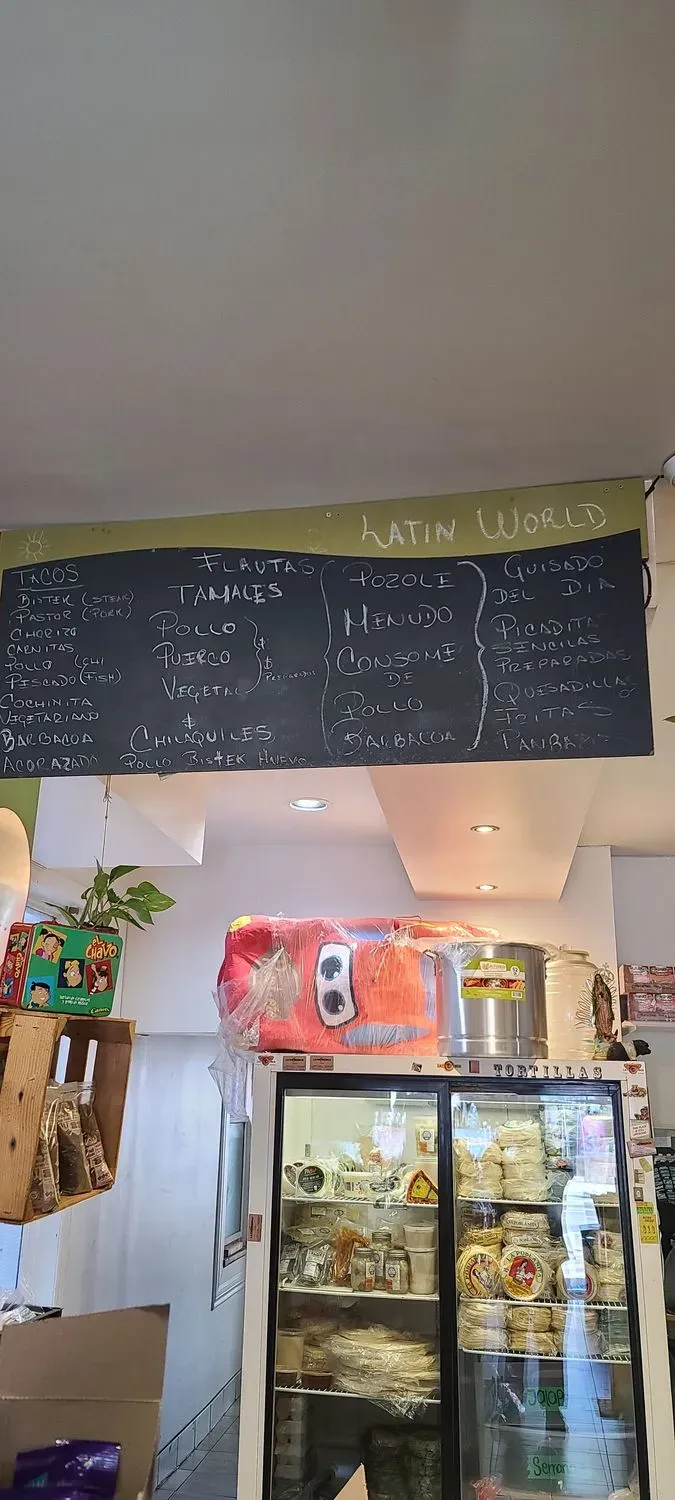 LATIN WORLD
TACOS
BISTEK (STEAK)
PASTOR (PORK)
CHORIZO
CARNITAS
POLLO (CHI
PESCADO (FISH)
COCHINITA
VEGETARIANO
BARBACOA
ACORAZADO
FLAUTAS
TAMALES
POLLO
PUERCO
VEGETAL
$
$
PREPARADOS
$
CHILAQUILES
POLLO BISTEK HUEVO
POZOLE
MENUDO
CONSOME
DE
POLLO
BARBACOA
GUISADO
DEL DIA
PICADITA
SENCILAS
PREPARADAS
QUESADILLAS
PAMBAZ
el CHAVO
TORTILLAS
JOLOP
Serrano